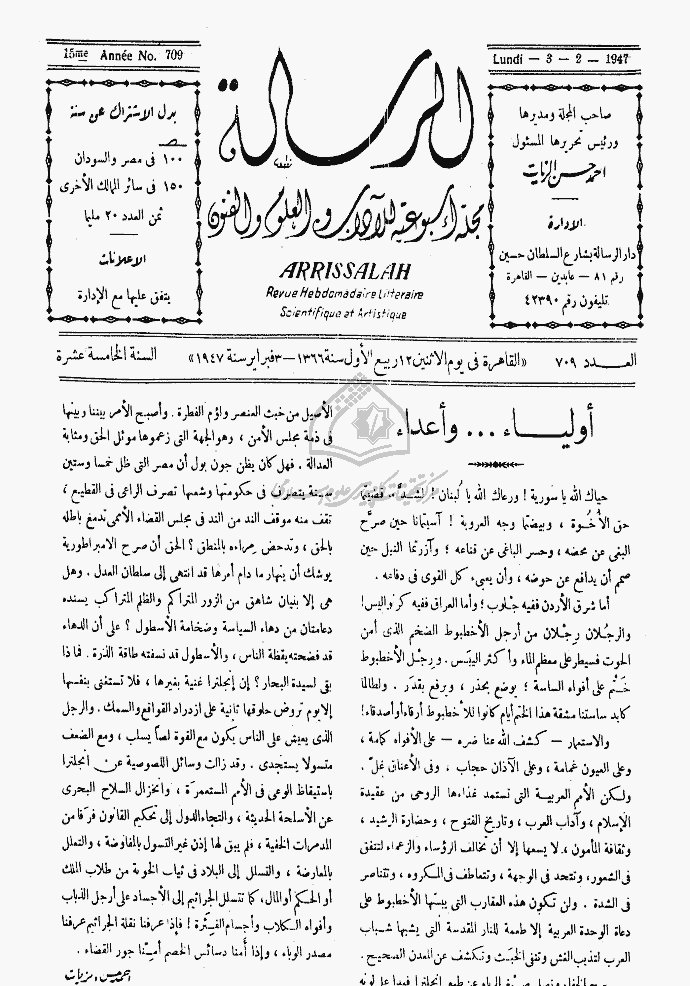 15me Année No. 709
Lundi - 3 - 2 - 1947
بدل الاشتراك عن سنة
١٠٠ فى مصر والسودان
١٥٠ فى سائر الممالك الأخرى
ثمن العدد ٢٠ مليما
الاعلانات
يتفق عليها مع الإدارة
الرسالة
مجلة أسبوعية للآداب والعلوم والفنون
ARRISSALAH
Revue Hebdomadaire Litteraire
Scientifique et Artistique
صاحب المجلة ومديرها
ورئيس تحريرها المسئول
احمد حسن الزيات
الادارة
دار الرسالة بشارع السلطان حسين
رقم ٨١ - عابدين - القاهرة
تليفون رقم ٤٢٣٩٠
العـــدد ٧٠٩
«القاهرة فى يوم الاثنين ١٢ ربيع الأول سنة ١٣٦٦ — ٣ فبراير سنة ١٩٤٧»
السنة الخامسة عشرة
أوليـــاء ... وأعداء
حياك الله يا سورية ! ورعاك الله يا لبنان ! لشدَّ ما قضيتما
حق الأُخُوة ، وبيضتما وجه العروبة ! آسيتمانا حين صرَّح
البغى عن محضه ، وحسر الباغى عن قناعه ؛ وآزرتما النيل حين
صمم أن يدافع عن حوضه ، وأن يعبىء كل القوى فى دفاعه .
أما شرق الأردن ففيه جلوب ؛ وأما العراق ففيه كرنواليس !
والرجُلان رِجْلان من أرجل الأخطبوط الضخم الذى أمن
الحوت فسيطر على معظم الماء وأكثر اليبَس . ورِجْل الأخطبوط
خَتْم على أفواه الساسة ؛ يوضع بحذر ، ويرفع بقدَر . ولطالما
كابد ساستنا مشقة هذا الختم أيام كانوا للأخطبوط أرقاء أو أصدقاء!
والاستعمار — كشف الله عنا ضره — على الأفواه كمامة ،
وعلى العيون غمامة ، وعلى الآذان حجاب ، وفى الأعناق غلّ .
ولكن الأمم العربيــة التى تستمد غذاءها الروحى من عقيدة
الإسلام ، وآداب العرب ، وتاريخ الفتوح ، وحضارة الرشيد ،
وثقافة المأمون ، لا يسعها إلا أن تخالف الرؤساء والزعماء لتتفق
فى الشعور ، وتتحد فى الوجهة ، وتتعاطف فى المكروه ، وتتناصر
فى الشدة . ولن تكون هذه العقارب التى يبثها الأخطبوط على
دعاة الوحدة العربية إلا طعمة للنار المقدسة التى يشبها شباب
العرب لتذيب الغش وتنفى الخبَث وتكشف عن المعدن الصحيح .
الأصيل من خبث العنصر ولؤم الفطرة . وأصبح الأمر بيننا وبينها
فى ذمة مجلس الأمن ، وهو الجهة التى زعموها موئل الحق ومثابة
العدالة . فهل كان يظن جون بول أن مصر التى ظل خمسا وستين
سنــة يتصرف فى حكومتها وشعبها تصرف الراعى فى القطيع ،
تقف منه موقف الند من الند فى مجلس القضاء الأممى تدمغ باطله
بالحق ، وتدحض مِراءه بالمنطق ؟ الحق أن صرح الامبراطورية
يوشك أن ينهار ما دام أمرها قد انتهى إلى سلطان العدل . وهل
هى إلا بنيان شاهق من الزور المتراكم والظلم المتراكب يسنده
دعامتان من دهاء السياسة وضخامة الأسطول ؟ على أن الدهاء
قد فضحته يقظة الناس ، والأسطول قد نسفته طاقة الذرة . فماذا
بقى لسيدة البحار؟ إن إنجلترا غنية بغيرها ، فلا تستغنى بنفسها
إلا يوم تروض حلوقها ثانية على ازدراد القواقع والسمك . والرجل
الذى يعيش على الناس يكون مع القوة لصاً يسلب ، ومع الضعف
متسولا يستجدى . رقد زالت وسائل اللصوصية عن انجلترا
باستيقاظ الوعى فى الأمم المستعمرَة ، وانخزال السلاح البحرى
عن الأسلحة الحديثة ، والتجاء الدول إلى تحكيم القانون فرَقا من
المدمرات الخفية ، فلم يبق لها إذن غير التسول بالمفاوضة ، والتعلل
بالمعارضة ، والتسلل إلى البلاد فى ثياب الخونة من طلاب الملك
أو الحكم أو المال ، كما تتسلل الجراثيم إلى الأجساد على أرجل الذباب
وأفواه الكلاب وأجسام الفيَرة ! فإذا عرفنا نقلة الجراثيم عرفنا
مصدر الوباء ، وإذا أمنا دسائس الخصم أمِنّا جور القضاء .
احمد حسن الزيات